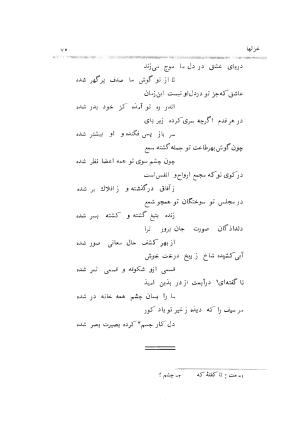 غزلها ۷۵
دریای عشق در دل ما موج می‌زند
تا از تو گوش ما صدف پرگهر شده
عاشق که جز تو در دل او نیست این زمان
اندر ره تو آمده کز خود بدر شده
در هر قدم اگرچه سری کرده زیر پای
سر باز پس فگنده و او بیشتر شده
چون گوش بهر طاعت تو جمله گشته سمع
چون چشم سوی تو همه اعضا نظر شده
در کوی تو که مجمع ارواح و انفس است
ز آفاق درگذشته و ز افلاک بر شده
در مجلس تو سوختگان تو همچو شمع
زنده بتیغ گشته و کشته بسر شده
دلدادگان صورت جان پرور ترا
از بهر کشف حال معانی صور شده
آبی کشیده شاخ ز بیخ درخت خوش
قسمی ازو شکوفه و قسمی ثمر شده
تا گفته‌ای۱ درآیمت از در بدین امید
ما را بسان چشم همه خانه در شده
مر سیف را که دیده ز خیر تو باد کور
دل کار جسم۲ کرده بصیرت بصر شده
۱ـ مت: تا گفتهٔ که ۲ـ چشم؟